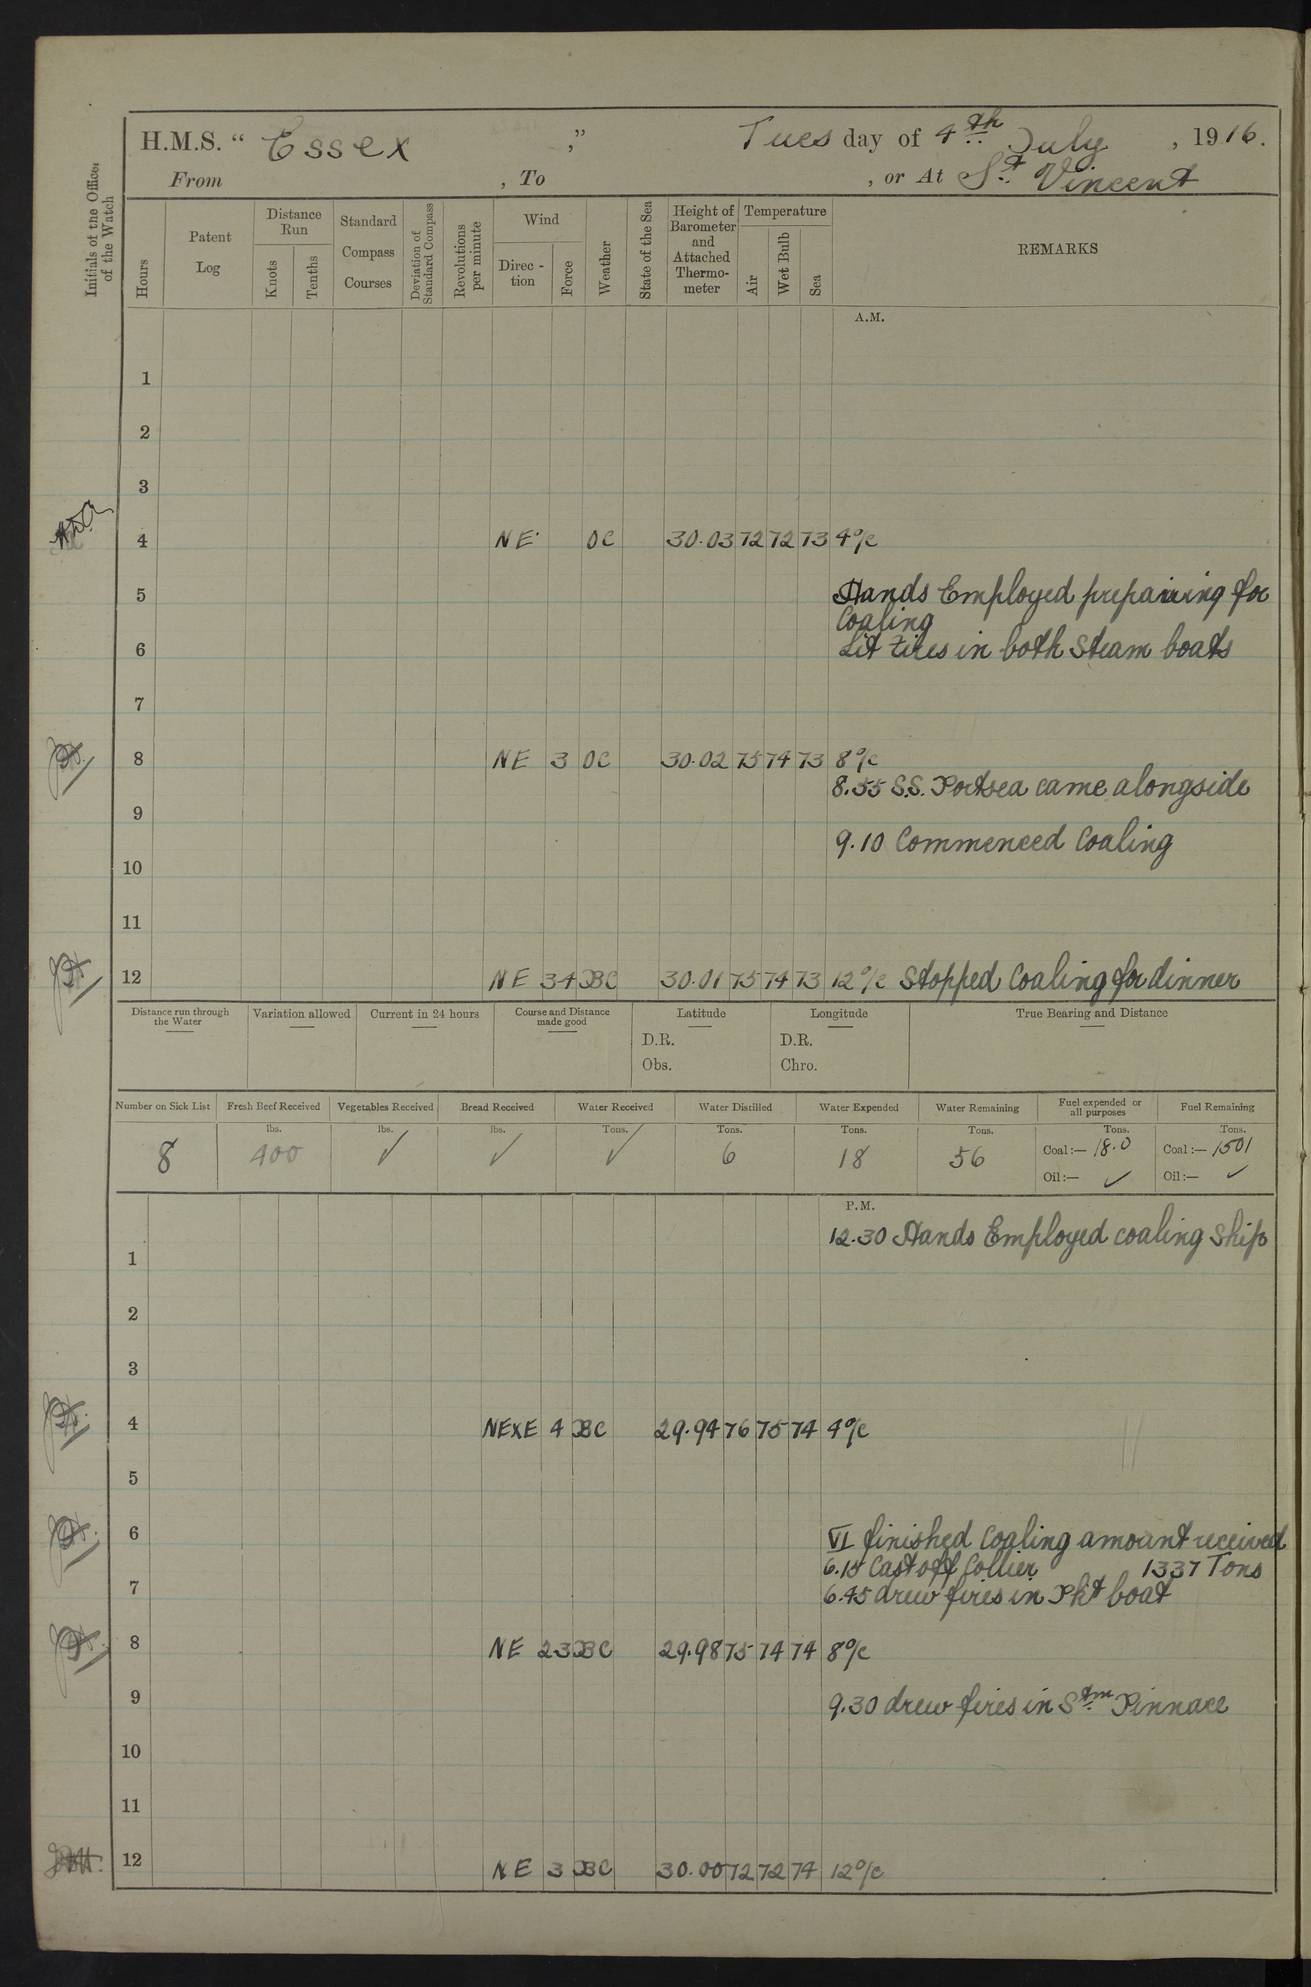 H.M.S. “ Essex ,” Tues day of 4th July , 1916.
From , To , or At St Vincent
Initials of the Officer of the Watch
Hours
Patent Log
Distance Run
Knots
Tenths
Standard Compass Courses
Deviation of Standard Compass
Revolutions per minute
Wind
Direction
Force
Weather
State of the Sea
Height of Barometer and Attached Thermometer
Temperature
Air
Wet Bulb
Sea
REMARKS
A.M.
1
2
3
4 NE OC 30.03 72 72 73 4 o/c
5 Hands Employed preparing for
Coaling
6 Lit fires in both Steam boats
7
8 NE 3 OC 30.02 75 74 73 8 o/c
8.55 S.S. Portsea came alongside
9
9.10 Commenced Coaling
10
11
12 NE 34 BC 30.01 75 74 73 12 o/c Stopped Coaling for dinner
Distance run through the Water
Variation allowed
Current in 24 hours
Course and Distance made good
Latitude
D.R.
Obs.
Longitude
D.R.
Chro.
True Bearing and Distance
Number on Sick List Fresh Beef Received Vegetables Received Bread Received Water Received Water Distilled Water Expended Water Remaining Fuel expended or all purposes Fuel Remaining
lbs. lbs. lbs. Tons. Tons. Tons. Tons. Tons. Tons.
8 400 ✓ ✓ ✓ 6 18 56 Coal:— 18.0 Coal:— 1501
Oil:— ✓ Oil:— ✓
P.M.
12.30 Hands Employed coaling Ship
1
2
3
4 NExE 4 BC 29.94 76 75 74 4 o/c
5
6 VI finished Coaling amount received
6.15 Cast off Collier 1337 Tons
7 6.45 drew fires in Pkt boat
8 NE 23 BC 29.98 75 74 74 8 o/c
9 9.30 drew fires in Stm Pinnace
10
11
12 NE 3 BC 30.00 72 72 74 12 o/c